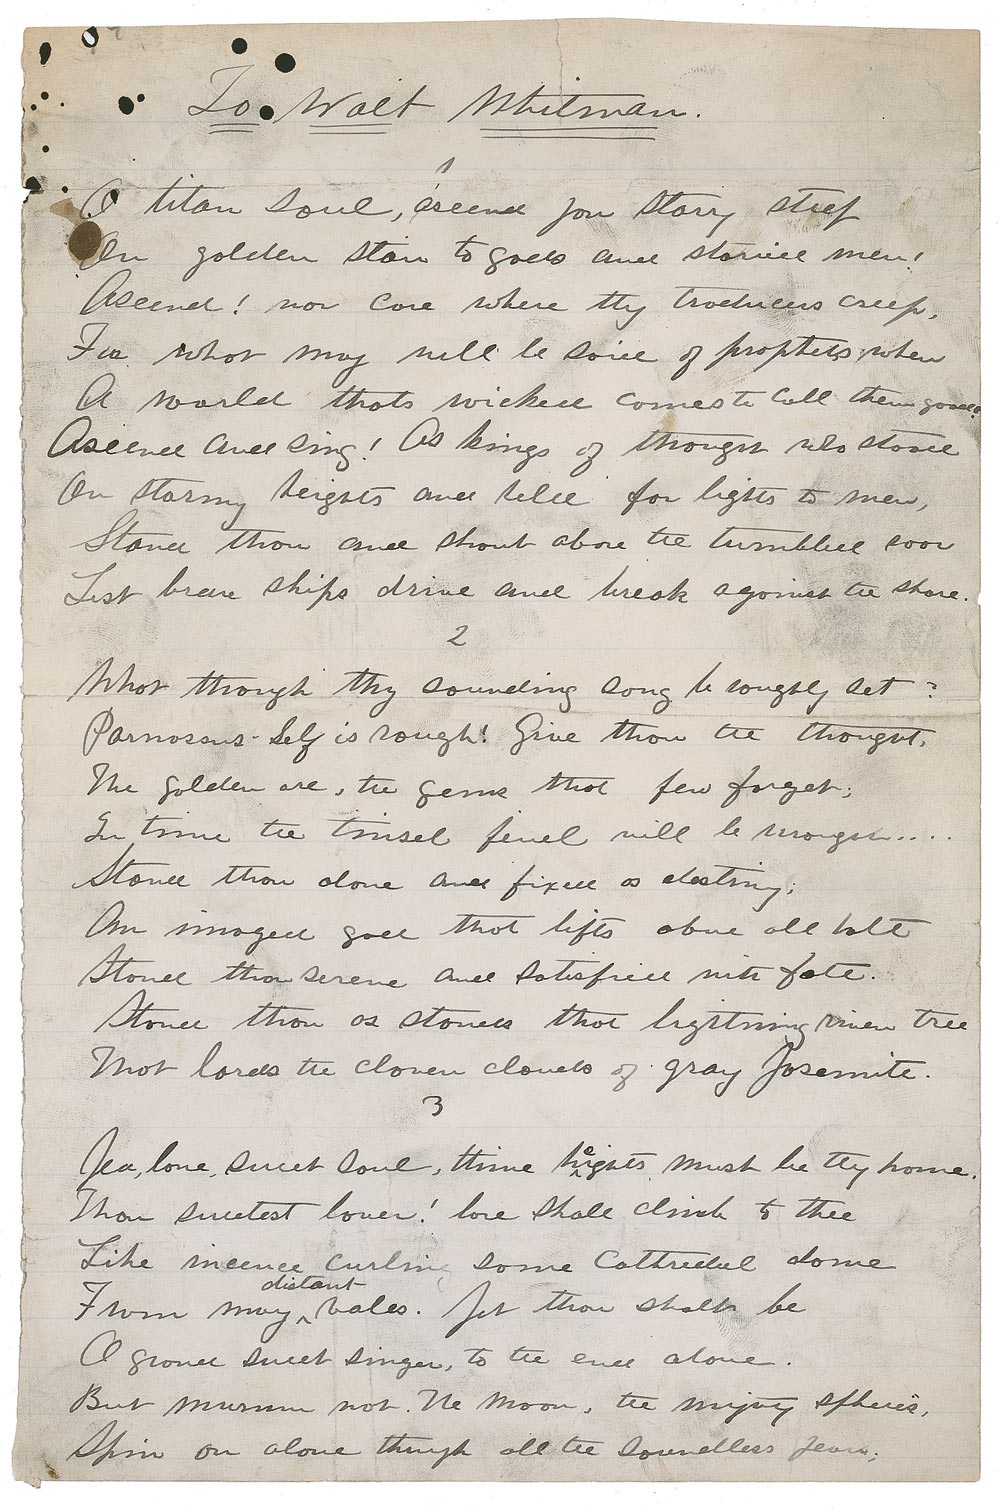 To Walt Whitman.
1
O titan soul, ascend your starry steep
On golden stair to gods and storied men!
Ascend! nor care where thy traducers creep,
For what may well be said of prophets, when
A world thats wicked comes to call them good?
Ascend and sing! As kings of thought who stood
On stormy heights and held far lights to men,
Stand thou and shout above the tumbled roar
Lest brave ships drive and break against the shore.
2
What though thy sounding song be roughly set?
Parnassus self is rough! Give thou the thought,
The golden ore, the gems that few forget;
In time the tinsel jewel will be wrought....
Stand thou alone and fixed as destiny;
An imaged god that lifts above all hate
Stand thou serene and satisfied with fate.
Stand thou as stands that lightning riven tree
That lords the cloven clouds of gray Yosemite.
3
Yea, lone, sweet soul, thine heights must be thy home.
Thou sweetest lover! love shall climb to thee
Like incence curling some cathredel dome
From many distant vales. Yet thou shalt be
O grand sweet singer, to the end alone.
But murmur not. The moon, the mighty spheres,
Spin on alone through all the soundless years;